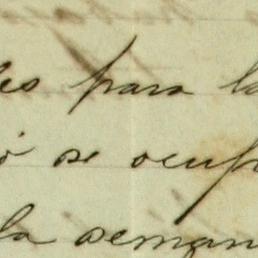 les para la
ó se ocup
la seman